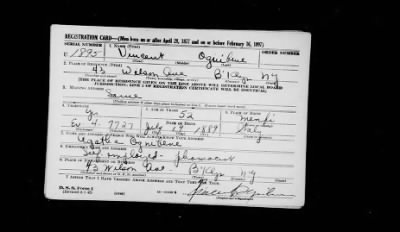 REGISTRATION CARD—(Men born on or after April 28, 1877 and on or before February 16, 1897)
SERIAL NUMBER 1. NAME (Print) ORDER NUMBER
U 1895 Vincent Ognibene
2. PLACE OF RESIDENCE (Print)
43 Wilson Ave B'klyn NY
[THE PLACE OF RESIDENCE GIVEN ON THE LINE ABOVE WILL DETERMINE LOCAL BOARD
JURISDICTION; LINE 2 OF REGISTRATION CERTIFICATE WILL BE IDENTICAL]
3. MAILING ADDRESS
Same
4. TELEPHONE 5. AGE IN YEARS 6. PLACE OF BIRTH
52 Menfi
DATE OF BIRTH
Ev 4. 9727 July 19 1889 Italy
7. NAME AND ADDRESS OF PERSON WHO WILL ALWAYS KNOW YOUR ADDRESS
Agatha Ognibene
8. EMPLOYER'S NAME AND ADDRESS
Self employed - pharmacist
9. PLACE OF EMPLOYMENT OR BUSINESS
43 Wilson Ave B'klyn NY
I AFFIRM THAT I HAVE VERIFIED ABOVE ANSWERS AND THAT THEY ARE TRUE.
D. S. S. Form 1